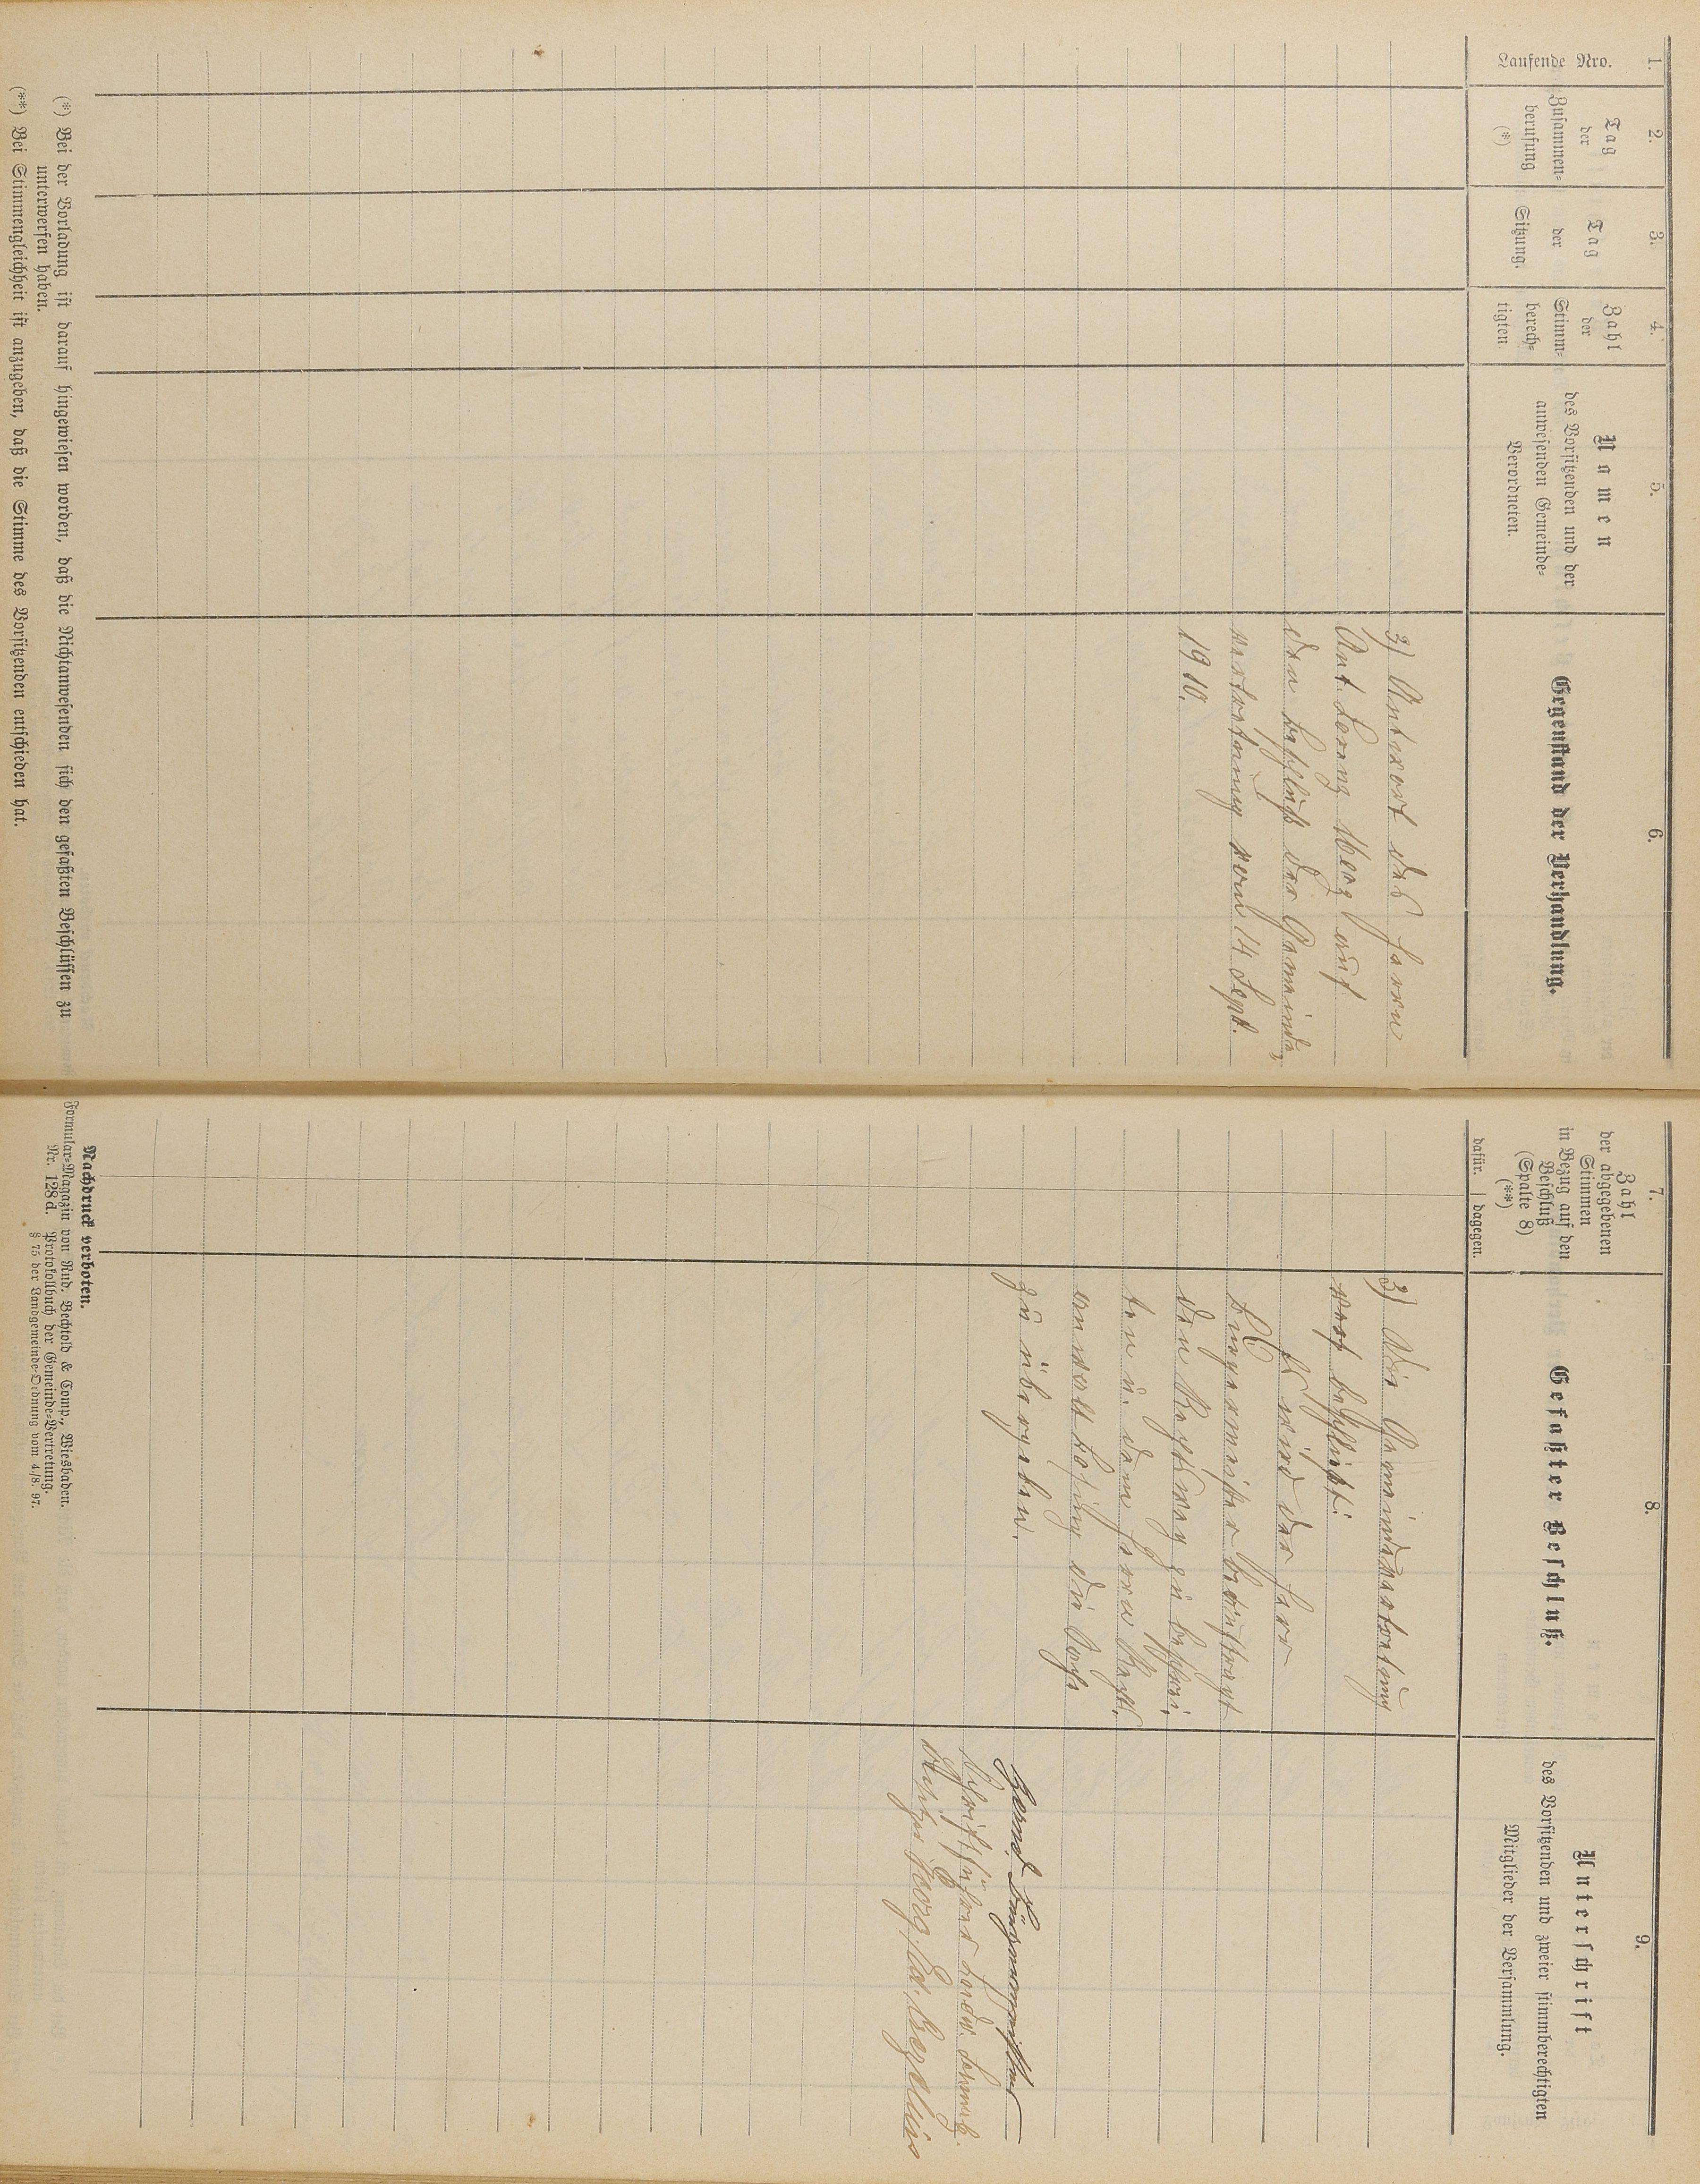 1.
Laufende Nro.
2.
Tag
der
Zusammen-
berufung
(*)
3.
Tag
der
Sitzung.
4.
Zahl
der
Stimm-
berech-
tigten.
5.
Namen
des Vorsitzenden und der
anwesenden Gemeinde-
Verordneten.
6.
Gegenstand der Verhandlung.
3) Antwort des Herrn
Ant. Lorenz auf
den Beschluß der Gemeinde-
vertretung vom 14 Sept.
1910.
(*) Bei der Vorladung ist darauf hingewiesen worden, daß die Nichtanwesenden sich den gefaßten Beschlüssen zu
unterwerfen haben.
(**) Bei Stimmengleichheit ist anzugeben, daß die Stimme des Vorsitzenden entschieden hat.
7.
Zahl
der abgegebenen
Stimmen
in Bezug auf den
Beschluß
(Spalte 8)
(**)
dafür. | dagegen.
8.
Gefaßter Beschluß.
3) Die Gemeindevertretung
beschließt:
Es wird der Herr
Bürgermeister beauftragt
den Rechtsweg zu beschrei-
ten u. dem Herrn Rechts-
anwalt die Sache
zu übergeben.
9.
Unterschrift
des Vorsitzenden und zweier stimmberechtigten
Mitglieder der Versammlung.
Bürgermeister
Schriftführer
Beisitzer Georg
Nachdruck verboten.
Formular-Magazin von Rud. Bechtold & Comp., Wiesbaden.
Nr. 128 d. Protokollbuch der Gemeinde-Vertretung.
§ 75 der Landgemeinde-Ordnung vom 4./8. 97.